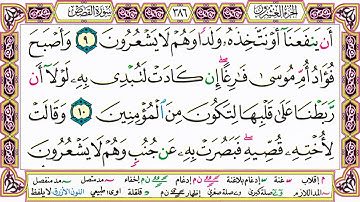 الجزء العشرون ٣٨٦ سورة القصص
أَن يَنفَعَنَا أَوْ نَتَّخِذَهُۥ وَلَدًا وَهُمْ لَا يَشْعُرُونَ ٩ وَأَصْبَحَ
فُؤَادُ أُمِّ مُوسَىٰ فَٰرِغًا إِن كَادَتْ لَتُبْدِى بِهِۦ لَوْلَآ أَن
رَّبَطْنَا عَلَىٰ قَلْبِهَا لِتَكُونَ مِنَ الْمُؤْمِنِينَ ١٠ وَقَالَتْ
لِأُخْتِهِۦ قُصِّيهِ فَبَصُرَتْ بِهِۦ عَن جُنُبٍ وَهُمْ لَا يَشْعُرُونَ